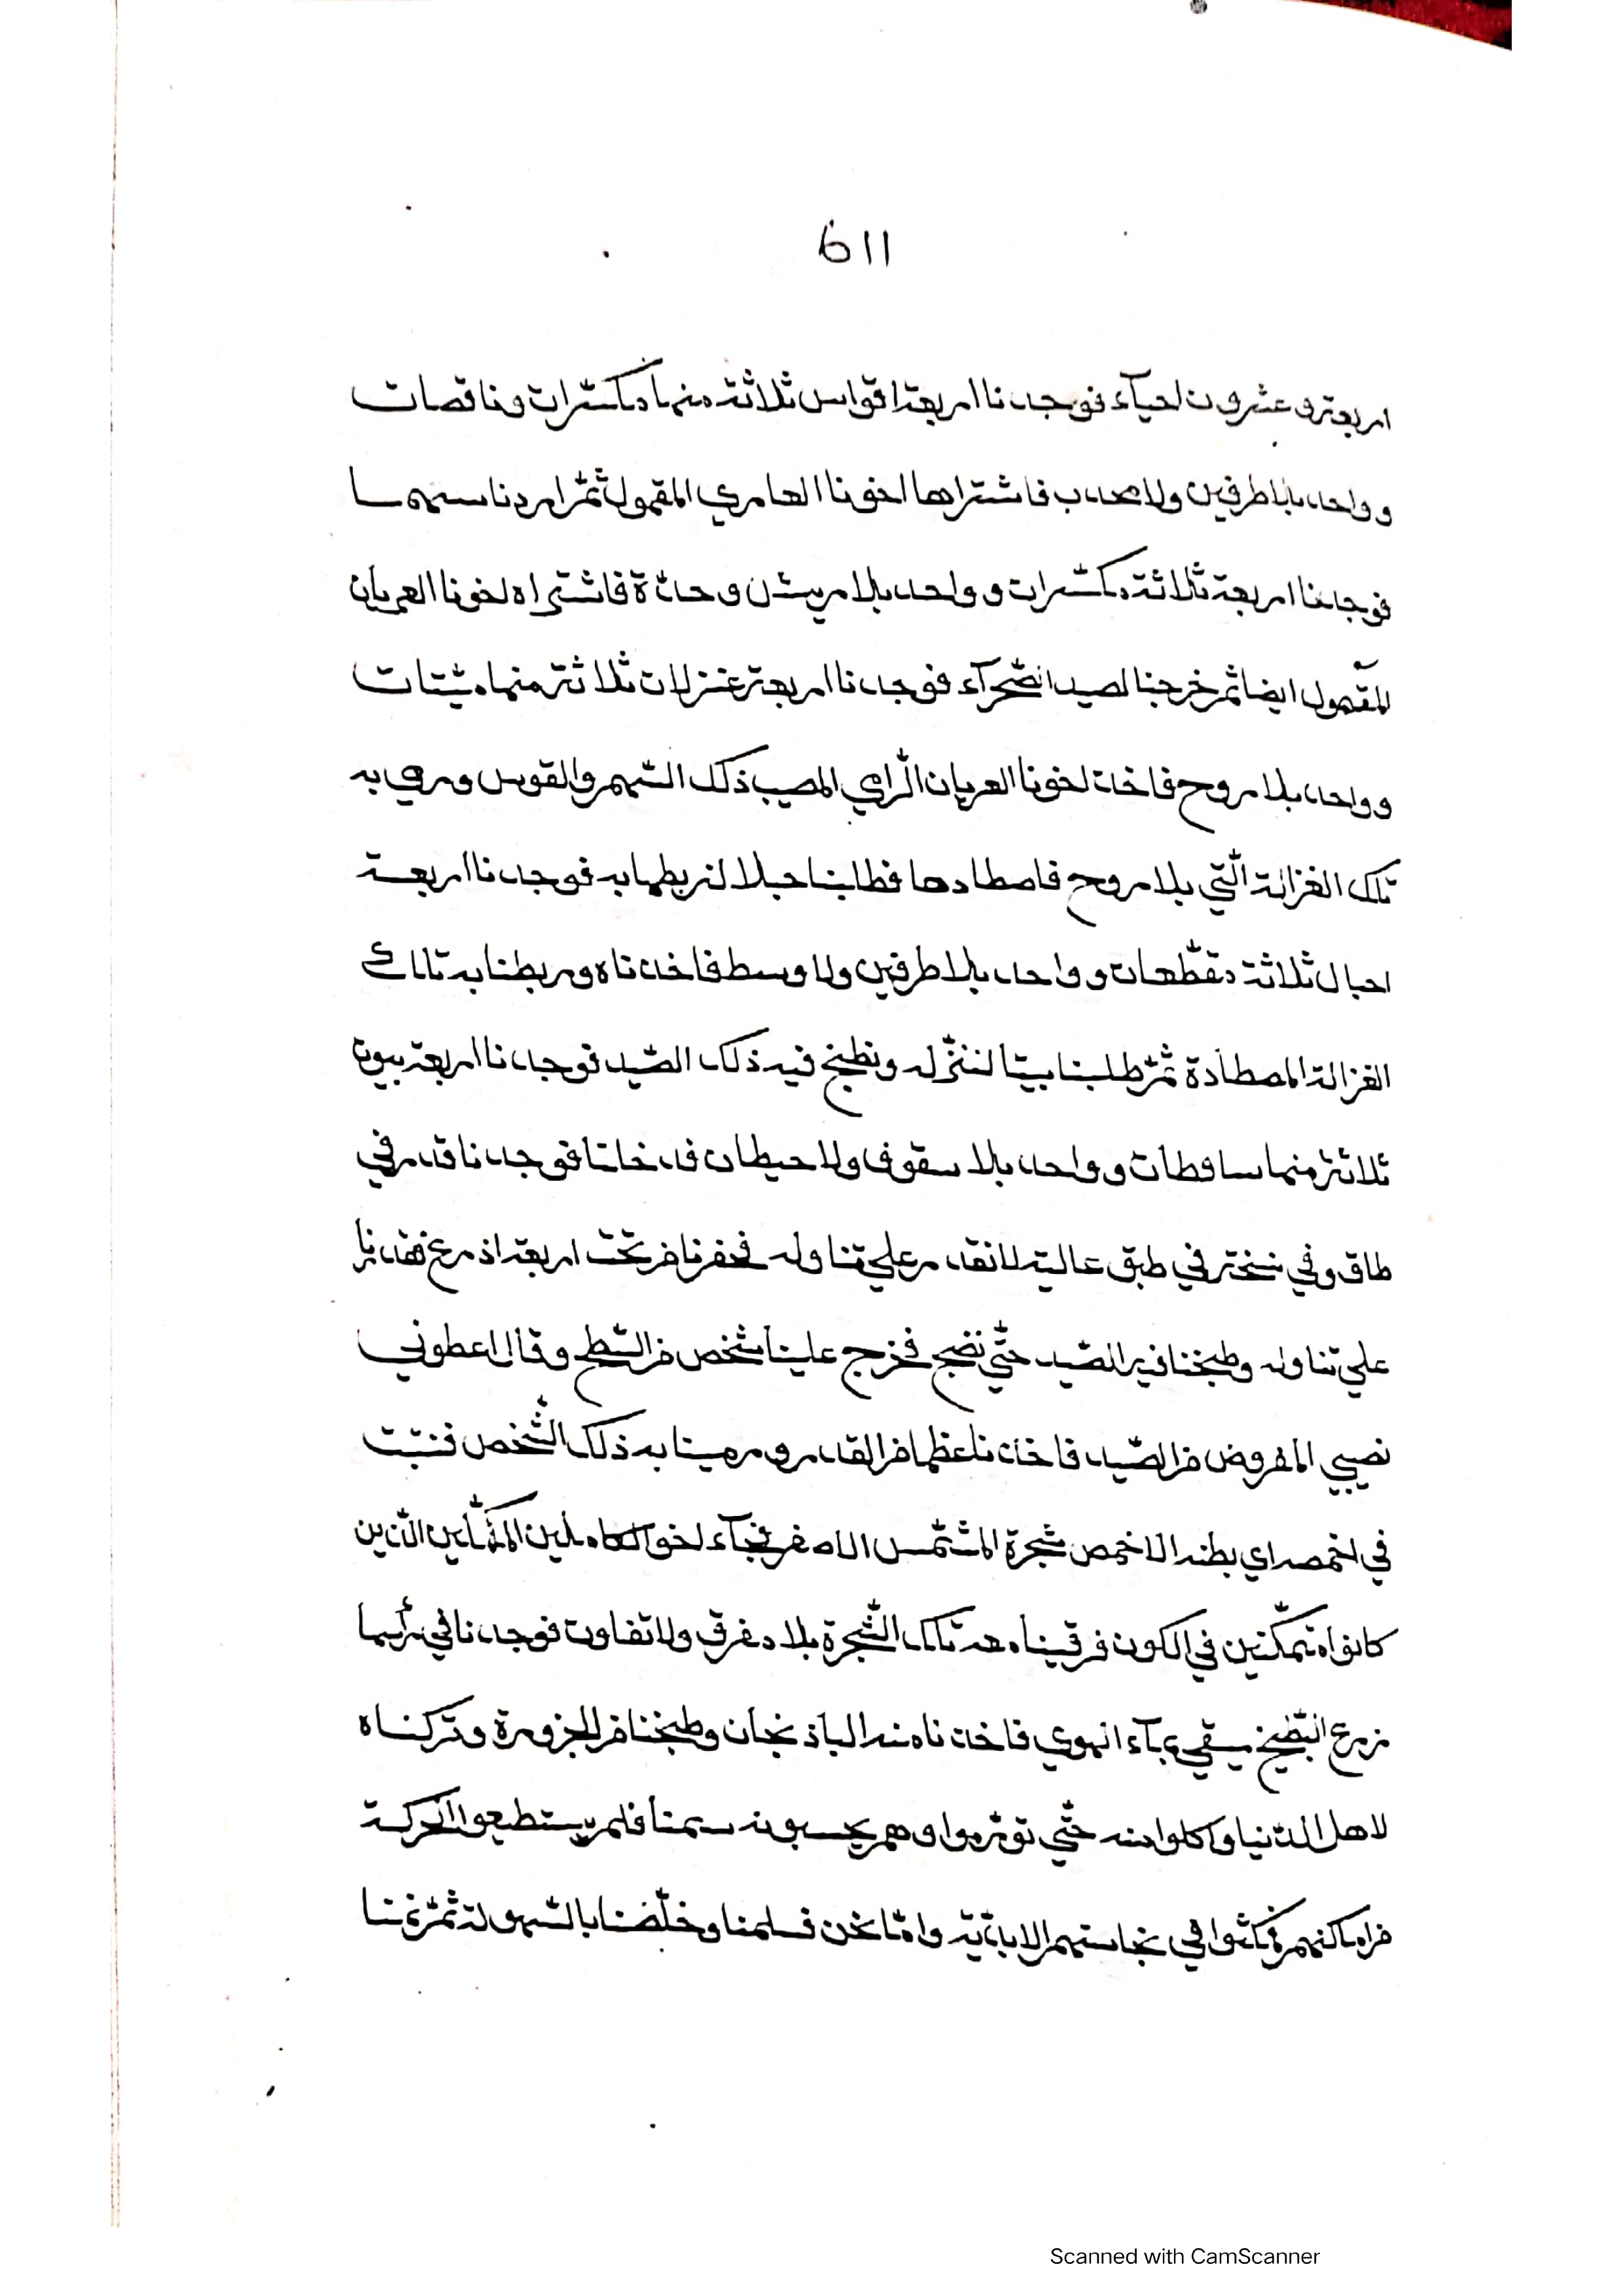 611
اربعة وعشرون احيآء فوجدنا اربعة اقواس ثلاثة منها مكسّرات وناقصات
وواحد بلا طرفين ولا صدب فاشتراها اخونا العامري المقمول ثمّ اردنا سهما
فوجدنا اربعة ثلاثة مكسّرات وواحد بلا ريش وحدّة فاشتراه اخونا العريان
المقمول ايضا ثمّ خرجنا لصيد الصّحرآء فوجدنا اربعة غزلان ثلاثة منها ميّتات
وواحد بلا روح فاخذ اخونا العريان الرّامي المصيب ذلك السّهم والقوس ورمي به
تلك الغزالة الّتي بلا روح فاصطادها فطلبنا حبلا لنربطها به فوجدنا اربعة
احبال ثلاثة مقطّعات وواحد بلا طرفين ولا وسط فاخذناه وربطنا به تلك
الغزالة المصطادة ثمّ طلبنا بيتا لننزله ونطبخ فيه ذلك الصّيد فوجدنا اربعة بيوت
ثلاثة منها ساقطات وواحد بلا سقوف ولا حيطان فدخلنا فوجدنا قدر في
طاق وفي نسخة في طبق عالية لا نقدر علي تناوله فحفرنا من تحت اربعة اذرع فقدرنا
علي تناوله وطبخنا فيه الصّيد حتّي نضج فخرج علينا شخص من السّطح وقال اعطوني
نصيبي المفروض من الصّيد فاخذنا عظما من القدر ورمينا به ذلك الشّخص فنبتت
في اخمصه اي بطنه الاخمص شجرة المشمّس الاصفر فجآء اخو الكاملين المكمّلين الّذين
كانوا متمكّنين في الكون فرقينا معه تلك الشّجرة بلا مفرق ولا تفاوت فوجدنا في رأسها
زرع البطّيخ يسقي بمآء الهوي فاخذنا منه الباذنجان وطبخنا من الجزورة وتركناه
لاهل الدّنيا واكلوا منه حتّي تورّموا وهم يحسبونه سمنا فلم يستطيعوا الحركة
من اماكنهم فمكثوا في نجاستهم الابديّة وامّا نحن فسلمنا وخلّصنا بالسّهولة ثمّ نمنا
Scanned with CamScanner